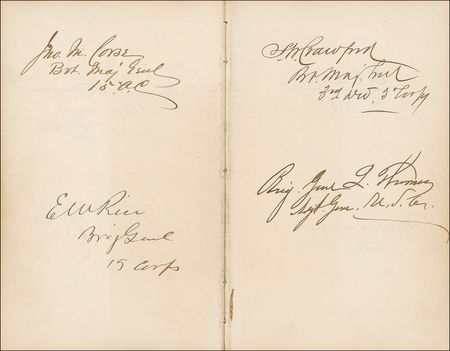 Jno. M. Corse
Bvt. Maj Genl
15 A.C.
E W Rice
Brig Genl
15 Corps
S. W. Crawford
Bvt Maj Genl
3rd Div. 5 Corps
Brig. Genl L. Thomas
Adjt Genl